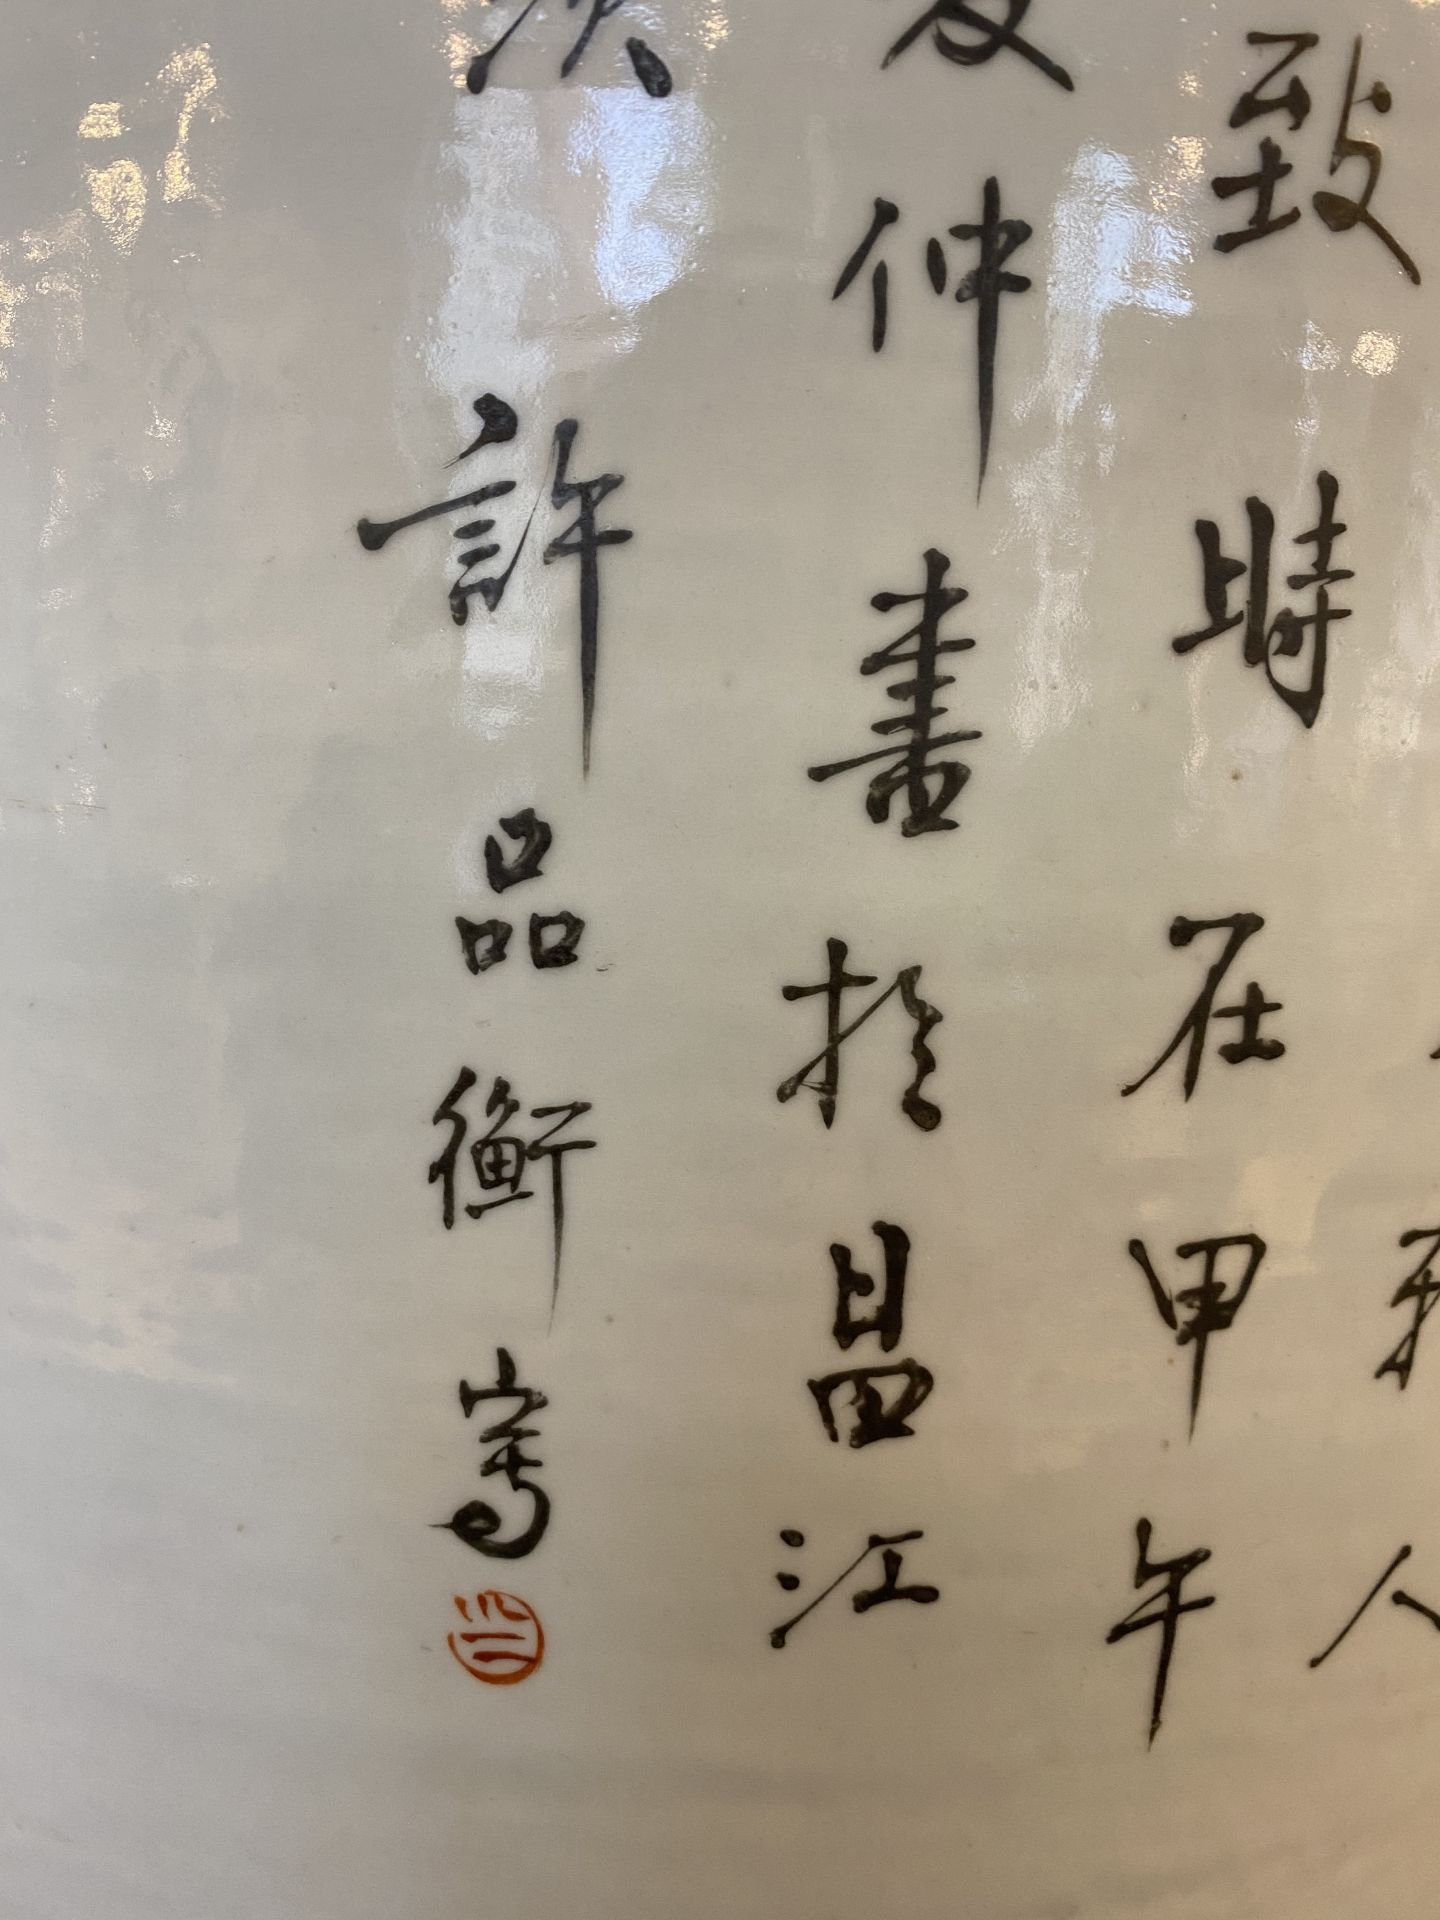 人
致時在甲午
夏仲畫於昌江
許品衡寫